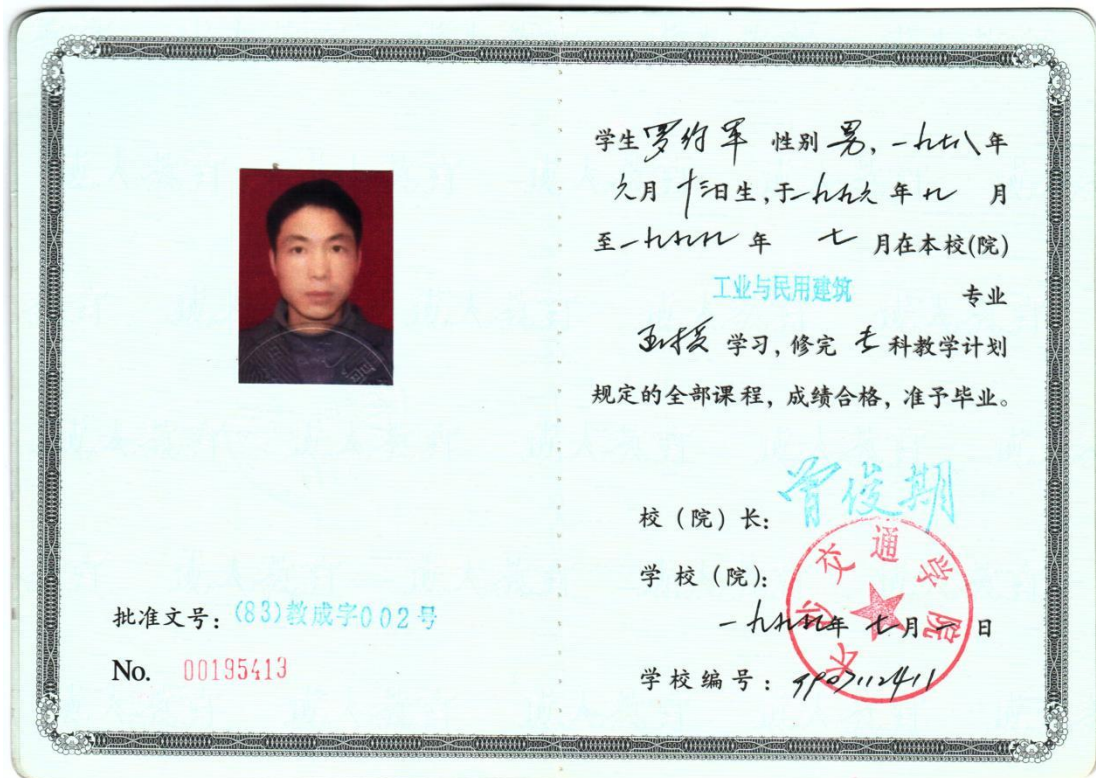 批准文号：(83)教成字002号
No. 00195413
学生罗约军 性别男，一九七八年
六月十三日生，于一九九六年九 月
至一九九九年 七 月在本校(院)
工业与民用建筑 专业
函授 学习，修完 专 科教学计划
规定的全部课程，成绩合格，准予毕业。
校（院）长：曾俊期
学校（院）：
长沙交通学院
一九九九年 七月一日
学校编号：